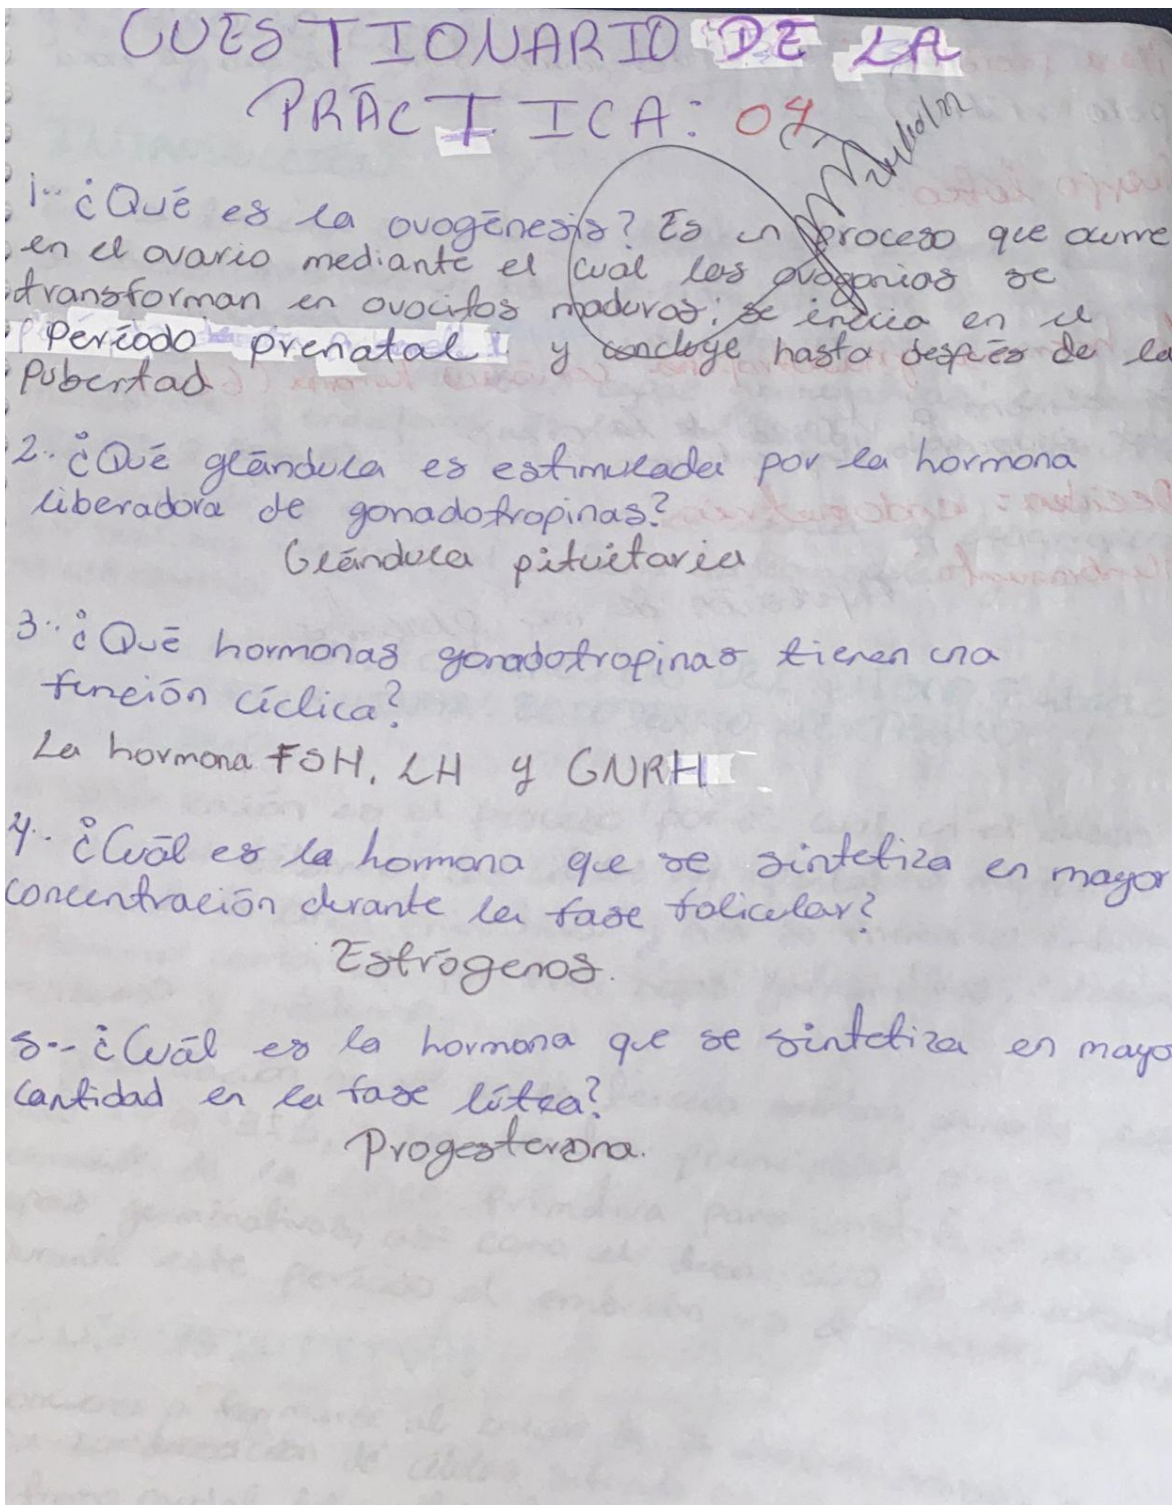 CUESTIONARIO DE LA
PRÁCTICA: 04
1.- ¿Qué es la ovogénesis? Es un proceso que ocurre
en el ovario mediante el cual las ovogonias se
transforman en ovocitos maduros; se inicia en el
Período prenatal y concluye hasta después de la
Pubertad
2.- ¿Qué glándula es estimulada por la hormona
liberadora de gonadotropinas?
Glándula pituitaria
3.- ¿Qué hormonas gonadotropinas tienen una
función cíclica?
La hormona FSH, LH y GNRH
4.- ¿Cuál es la hormona que se sintetiza en mayor
concentración durante la fase folicular?
Estrógenos.
5.- ¿Cuál es la hormona que se sintetiza en mayo
cantidad en la fase lútea?
Progesterona.